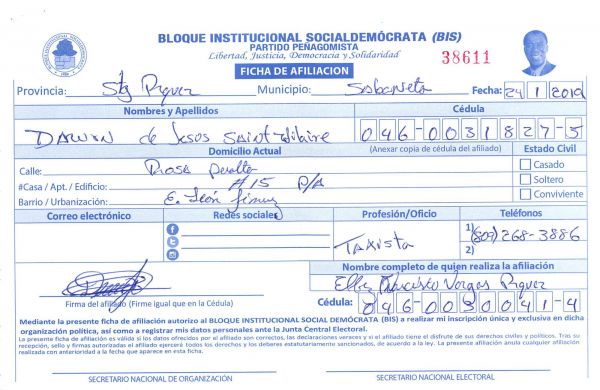 BLOQUE INSTITUCIONAL SOCIALDEMÓCRATA (BIS)
PARTIDO PEÑAGOMISTA
Libertad, Justicia, Democracia y Solidaridad
38611
FICHA DE AFILIACION
Provincia: Stg Rguez Municipio: Sabaneta Fecha: 24/1/2019
Nombres y Apellidos Cédula
Darwin de Jesus Saint-Hilaire 046-0031827-5
Domicilio Actual (Anexar copia de cédula del afiliado) Estado Civil
Calle: Rosa Peralta Casado
#Casa / Apt. / Edificio: #15 P/A Soltero
Barrio / Urbanización: E. León Jimenez Conviviente
Correo electrónico Redes sociales Profesión/Oficio Teléfonos
Taxista 1) (809) 268-3886
2)
Nombre completo de quien realiza la afiliación
Francisco Vargas Rguez
Firma del afiliado (Firme igual que en la Cédula) Cédula: 046-0030041-4
Mediante la presente ficha de afiliación autorizo al BLOQUE INSTITUCIONAL SOCIAL DEMÓCRATA (BIS) a realizar mi inscripción única y exclusiva en dicha
organización política, así como a registrar mis datos personales ante la Junta Central Electoral.
La presente ficha de afiliación es válida si los datos ofrecidos por el afiliado son correctos, las declaraciones veraces y si el afiliado tiene el disfrute de sus derechos civiles y políticos. Tras su
recepción, sello y firmas autorizadas el afiliado ejercerá todos los derechos y los deberes estatutariamente sancionados, de acuerdo a la ley. La presente afiliación anula cualquier afiliación
realizada con anterioridad a la fecha que aparece en esta ficha.
SECRETARIO NACIONAL DE ORGANIZACIÓN SECRETARIO NACIONAL ELECTORAL